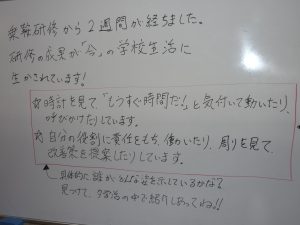 乗鞍研修から2週間が経ちました。
研修の成果が「今」の学校生活に
生かされています!
☆時計を見て「もうすぐ時間だ!」と気付いて動いたり、
呼びかけたりしています。
☆自分の役割に責任をもち、働いたり、周りを見て、
改善策を提案したりしています。
具体的に誰がどんな姿を示しているかな?
見つけて、夕学活の中で紹介しあってね!!